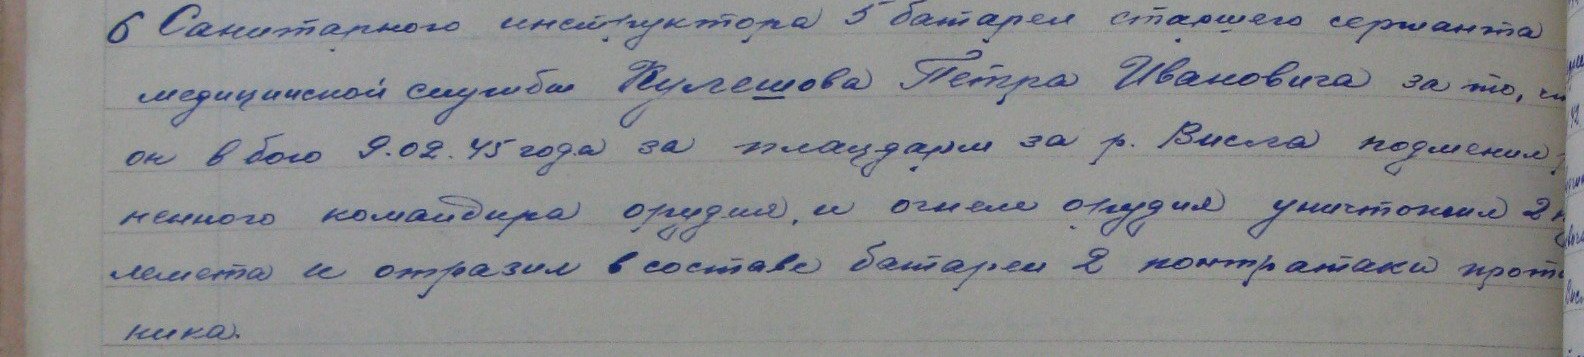 6 Санитарного инструктора 5 батареи старшего сержанта
медицинской службы Кулешова Петра Ивановича за то,
он в бою 9.02.45 года за плацдарм за р. Висла подменил
ненного командира орудия, и огнем орудия уничтожил 2
лемета и отразил в составе батареи 2 контратаки прот
ника.